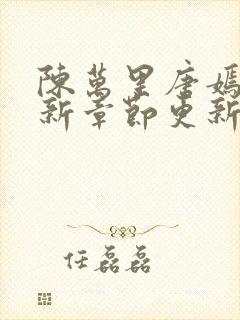 陳萬里唐嫣
新章節更新
任磊磊